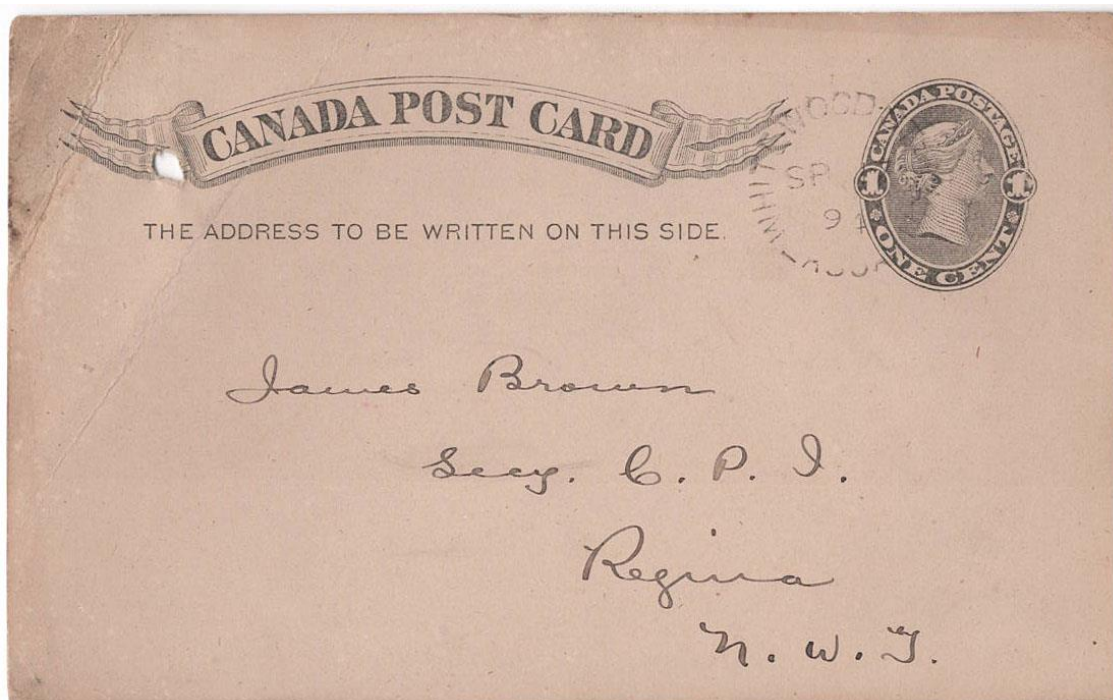 CANADA POST CARD
THE ADDRESS TO BE WRITTEN ON THIS SIDE.
SP
CANADA POSTAGE
1 1
ONE CENT
James Brown
Secy. C. P. I.
Regina
N. W. T.